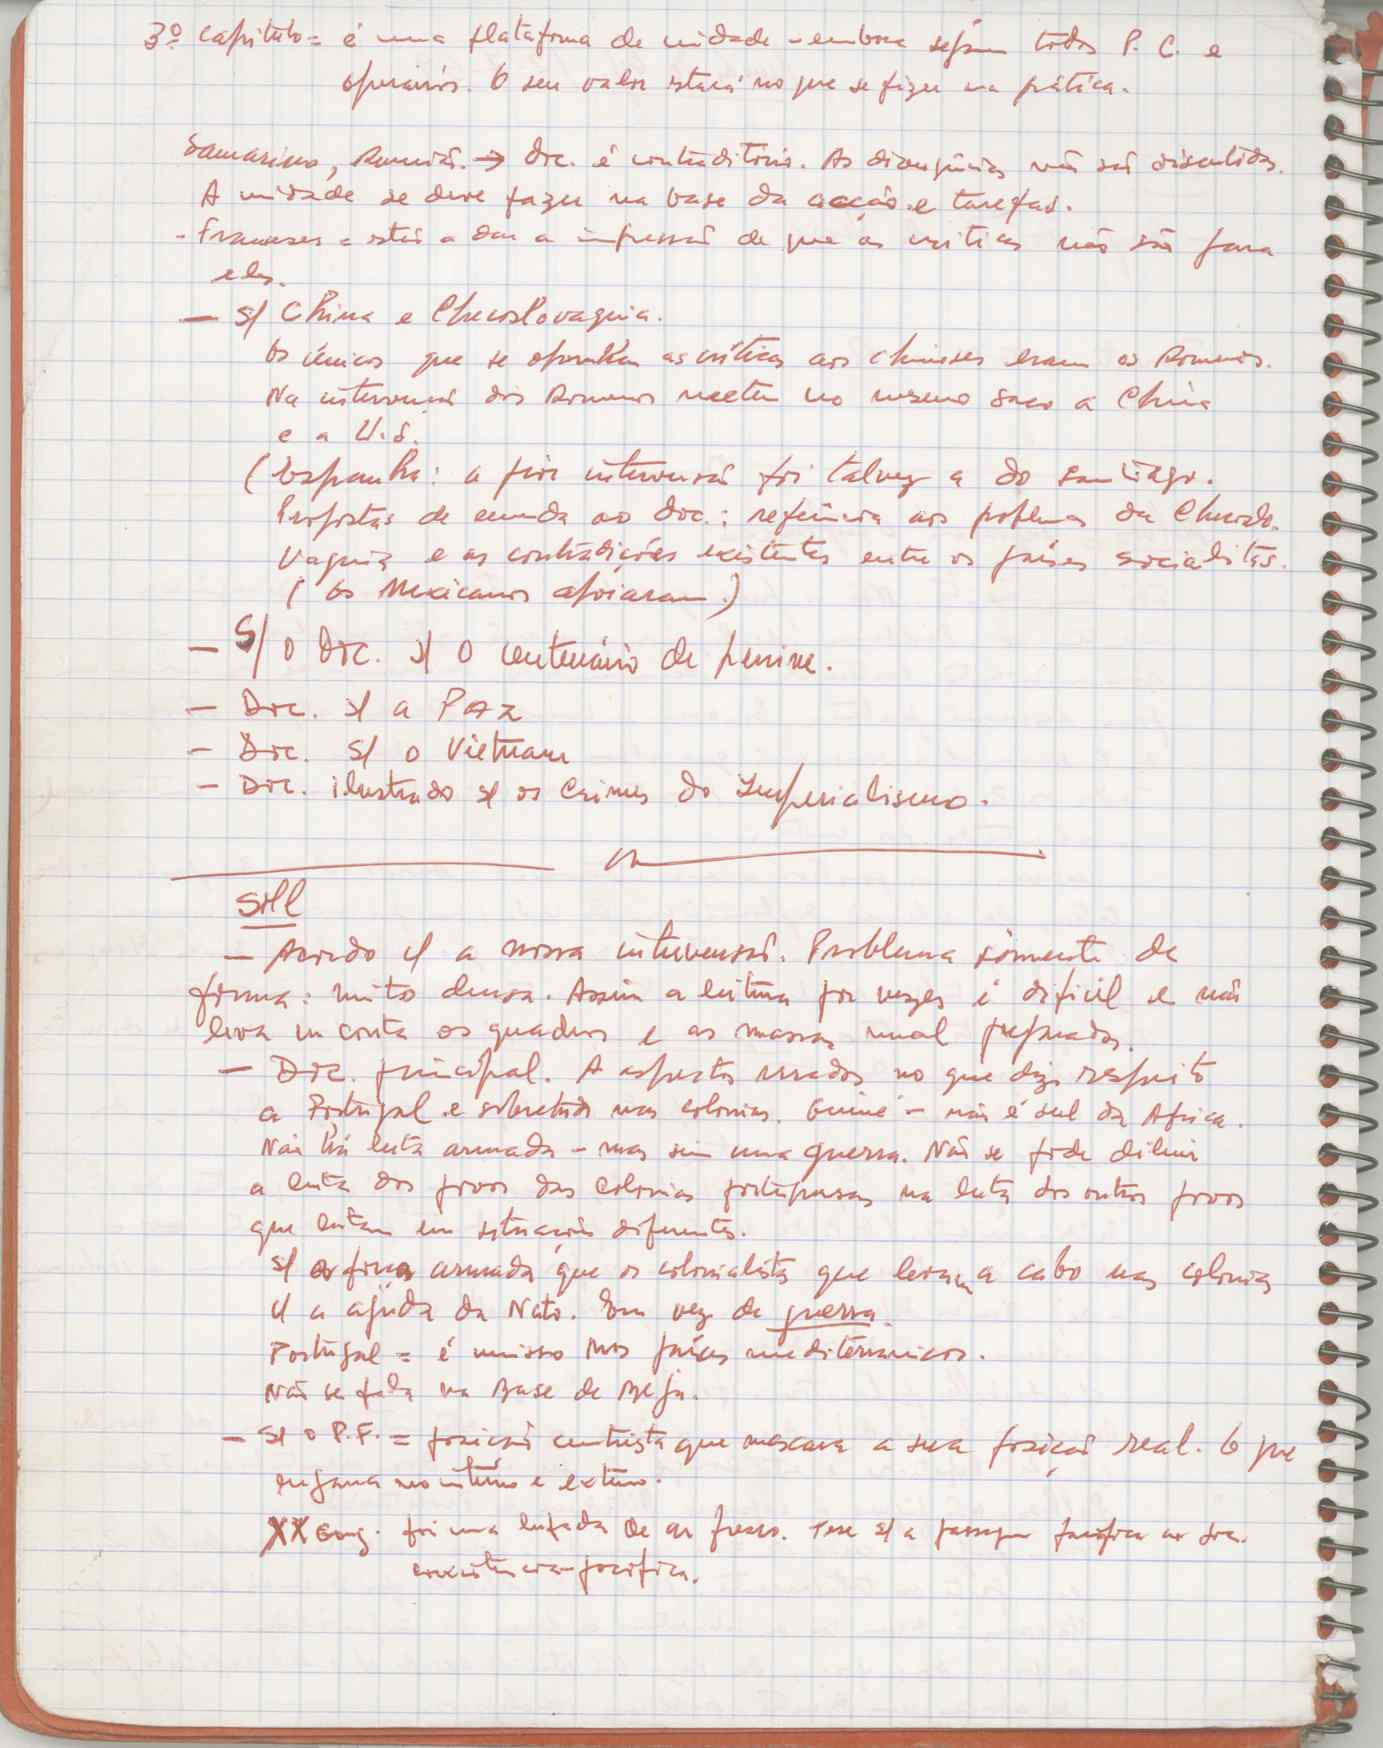 3º Capítulo = é uma plataforma de unidade - embora sejam todos P. C. e
operários. O seu valor estará no que se fizer na prática.
Samarino, Romenos. → doc. é contraditório. As divergências não são discutidas.
A unidade se deve fazer na base da acção e tarefas.
- Franceses = estão a dar a impressão de que as criticas não são para
eles.
- s/ China e Checoslovaquia.
Os únicos que se opunham as críticas aos chineses eram os Romenos.
Na intervenção dos Romenos metem no mesmo saco a China
e a U.S.
(Espanha: a pior intervenção foi talvez a do Santiago.
Propostas de emenda ao doc.: referência aos problemas da Checoslo-
vaquia e as contradições existentes entre os países socialistas.
(Os Mexicanos apoiaram.)
- S/ o Doc. s/ o centenário de Lenine.
- Doc. s/ a PAZ
- Doc. s/ o Vietnam
- Doc. ilustrado s/ os Crimes do Imperialismo.
- Acordo c/ a nossa intervenção. Problema sòmente de
forma: muito densa. Assim a leitura por vezes é dificil e não
leva em conta os quadros e as massas menos preparadas.
- Doc. principal. A aspectos errados no que diz respeito
a Portugal e sobretudo nas colonias. Guiné - não é sul da Africa.
Não há luta armada - mas sim uma guerra. Não se pode diluir
a luta dos povos das colonias portuguesas na luta dos outros povos
que lutam em situações diferentes.
s/ a força armada que os colonialistas que levam a cabo nas colonias
c/ a ajuda da Nato. Em vez de guerra.
Portugal = é omisso nos países mediterranicos.
Não se fala na Base de Beja.
- S/ o P.F. = posição centrista que mascara a sua posição real. O que
engana no interno e externo.
XX Cong. foi uma lufada de ar fresco. Tese s/ a passagem pacífica ao soc.
coexistencia pacífica.